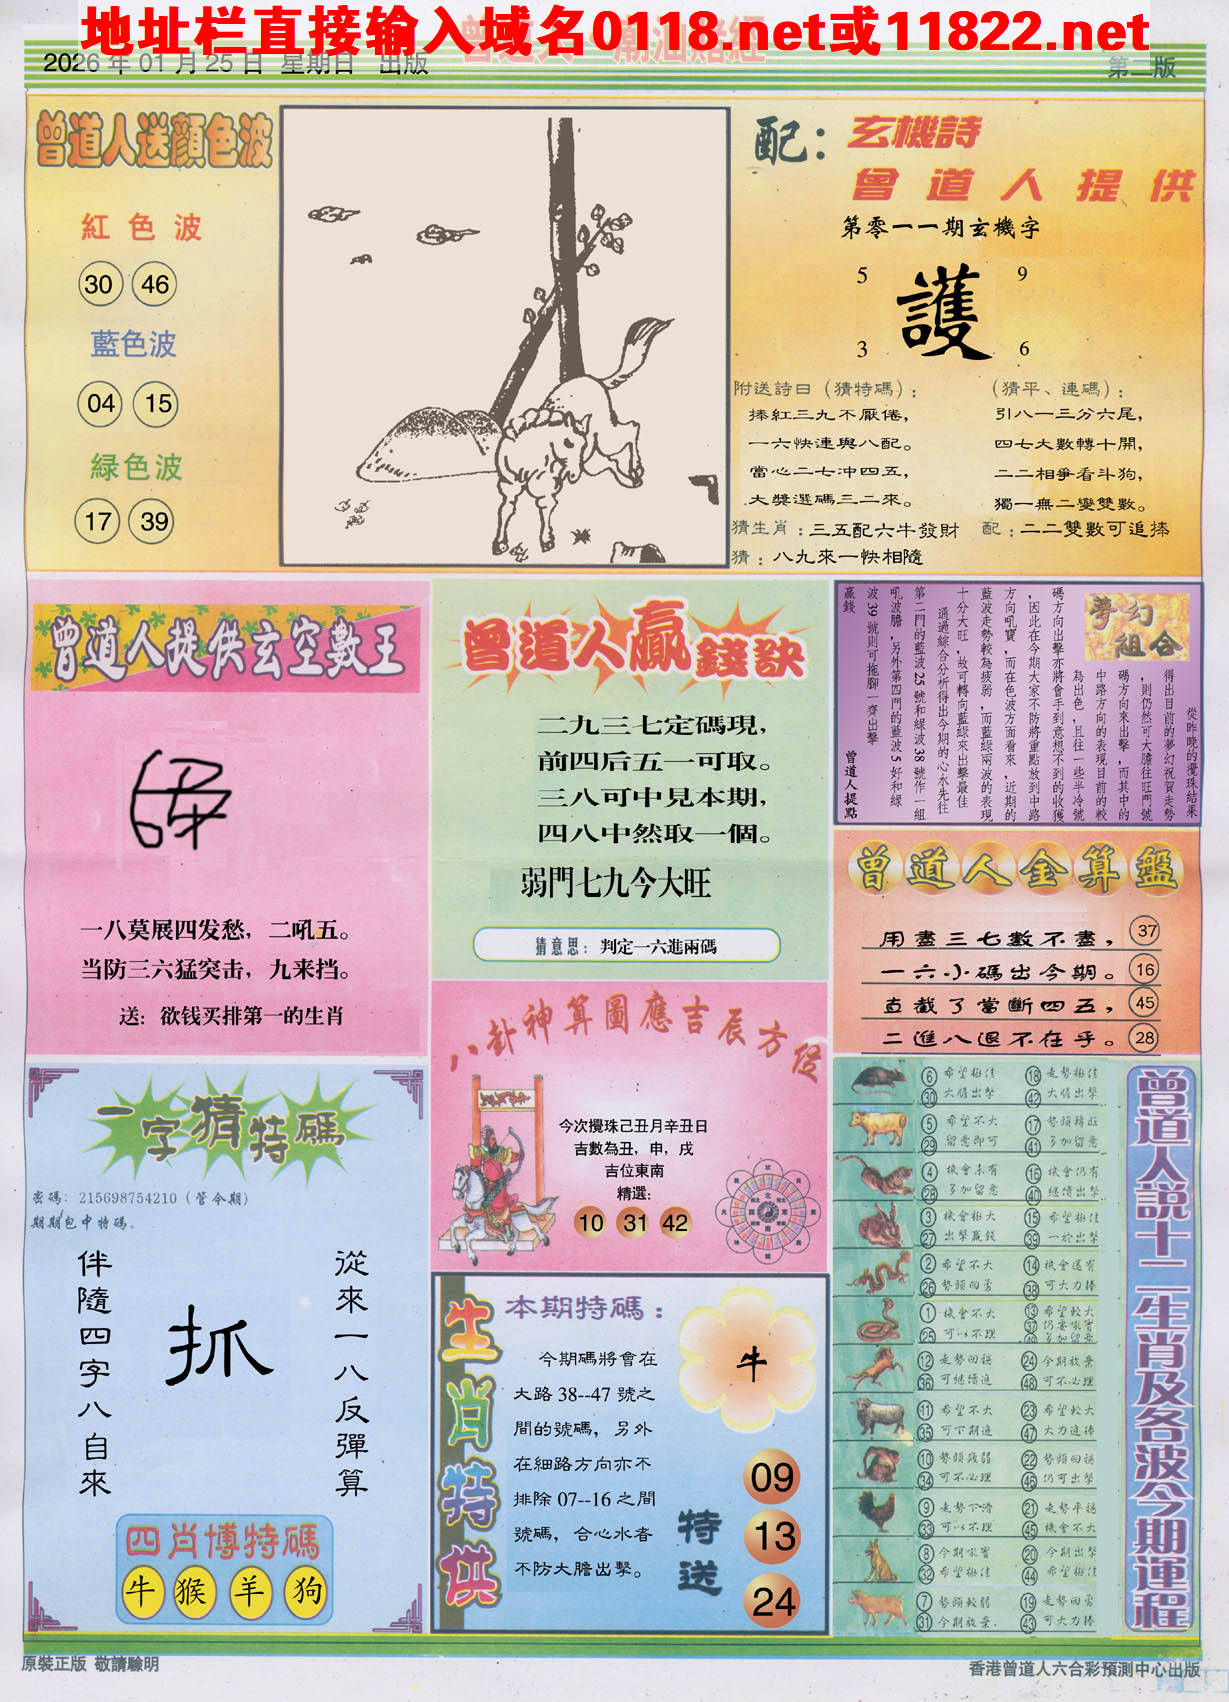 地址栏直接输入域名0118.net或11822.net
2026年01月25日 星期日 出版
第二版
曾道人送顏色波
紅色波
30 46
藍色波
04 15
緑色波
17 39
配：玄機詩
曾道人提供
第零一一期玄機字
5 9
護
3 6
附送詩曰（猜特碼）：
捧紅三九不厭倦，
一六快連與八配。
當心二七冲四五，
大獎選碼三二來。
（猜平、連碼）：
引八一三分六尾，
四七大數轉十開，
二二相爭看斗狗，
獨一無二變雙數。
猜生肖：三五配六牛發財
配：二二雙數可追捧
猜：八九來一快相隨
曾道人提供玄空數王
一八莫展四发愁，二吼五。
当防三六猛突击，九来挡。
送：欲钱买排第一的生肖
曾道人贏錢訣
二九三七定碼現，
前四后五一可取。
三八可中見本期，
四八中然取一個。
弱門七九今大旺
猜意思：判定一六進兩碼
夢幻組合
從昨晚的攪珠結果
得出目前的夢幻祝賀走勢
，則仍然可大膽往旺門號
碼方向來出擊，而其中的
中路方向的表現目前的較
為出色，且往一些半冷號
碼方向出擊亦將會手到意想不到的收獲
，因此在今期大家不防將重點放到中路
方向吼寶，而在色波方面看來，近期的
藍波走勢較為疲弱，而藍綠兩波的表現
十分大旺，故可轉向藍綠來出擊最佳
通過綜合分析得出今期的心水先往
第二門的藍波25號和綠波38號作一組
吼波膽，另外第四門的藍波5好和綠
波39號則可拖腳一齊出擊
贏錢
曾道人提點
曾道人金算盤
用盡三七數不盡， 37
一六小碼出今期。 16
直截了當斷四五， 45
二進八退不在乎。 28
一字猜特碼
密碼：215698754210（管今期）
期期包中特碼。
從來一八反彈算
抓
伴隨四字八自來
四肖博特碼
牛 猴 羊 狗
八卦神算圖應吉辰方位
今次攪珠己丑月辛丑日
吉數為丑，申，戌
吉位東南
精選:
10 31 42
生肖特供
本期特碼：
牛
今期碼將會在
大路38--47號之
間的號碼，另外
在細路方向亦不
排除07--16之間
號碼，合心水者
不防大膽出擊。
特送
09
13
24
曾道人説十二生肖及各波今期運程
6 希望極佳 18 走勢極佳
30 大膽出擊 42 大膽出擊
5 希望不大 17 勢頭精旺
29 留意即可 41 多加留意
4 機會未有 16 機會仍有
28 多加留意 40 繼續出擊
3 機會極大 15 希望極佳
27 出擊贏錢 39 一於出擊
2 希望不大 14 機會還有
26 勢頭回勇 38 可大力捧
1 機會不大 13 希望較大
25 可以不理 37
多加留意
12 走勢回穩 24 今期放棄
36 可繼續追 48 可不必理
11 希望不大 23 希望較大
35 可下期追 47 大力追捧
10 勢頭疲弱 22 勢頭回穩
34 可不必理 46 仍可出擊
9 走勢下滑 21 走勢平穩
33 可以不理 45 機會不大
8 今期吼實 20 今期出擊
32 希望極佳 44 希望極佳
7 勢頭較弱 19 走勢回勇
31 今期放棄. 43 可大力捧
原裝正版 敬請驗明
香港曾道人六合彩預測中心出版